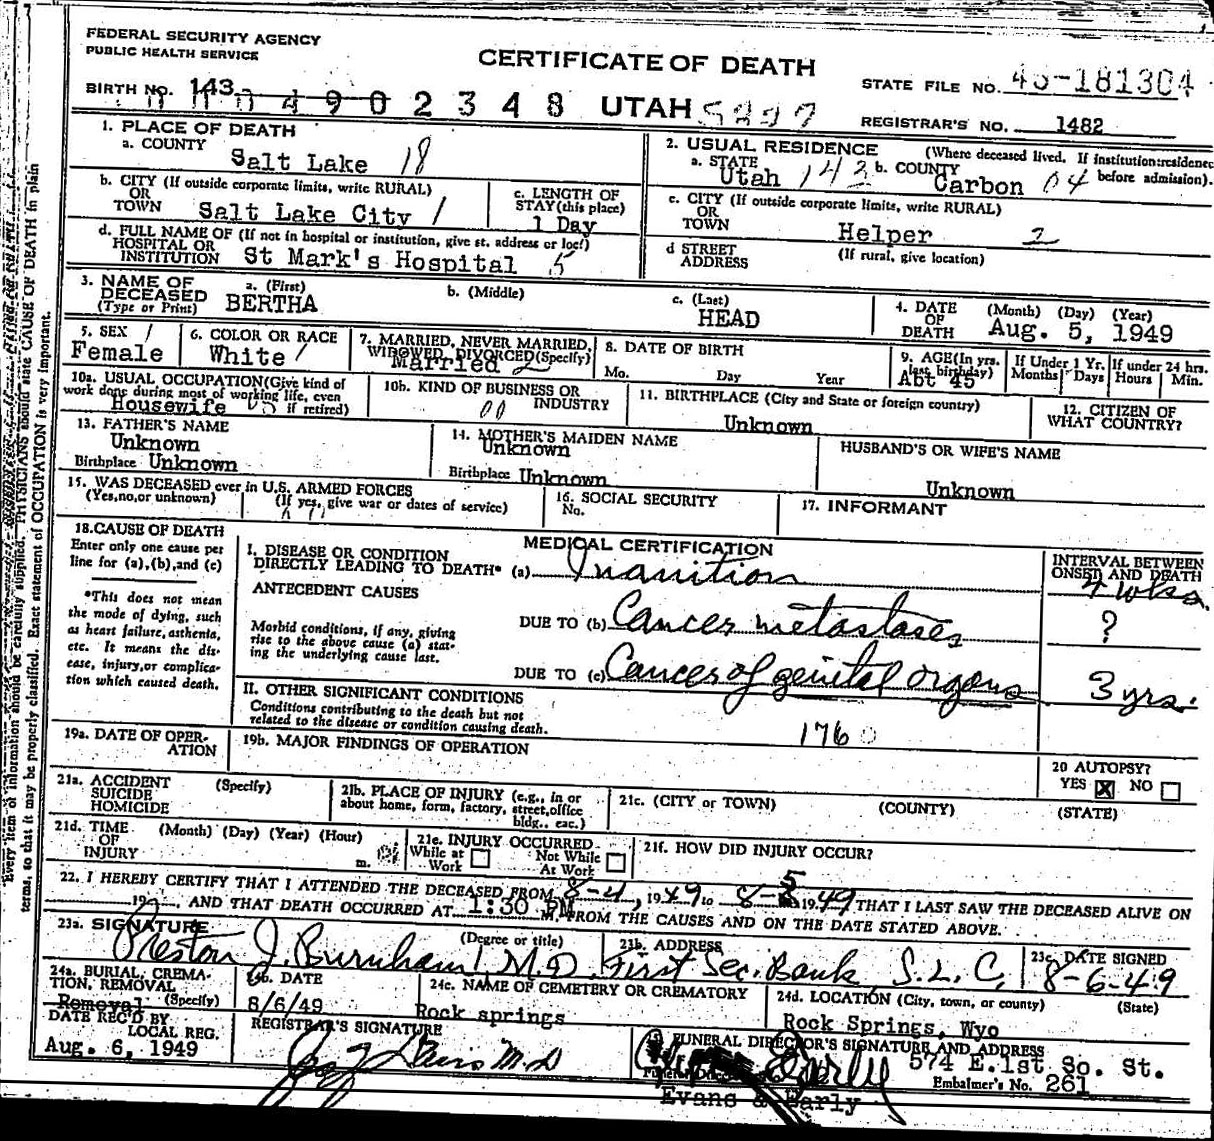 FEDERAL SECURITY AGENCY
PUBLIC HEALTH SERVICE
CERTIFICATE OF DEATH
STATE FILE NO. 45-181304
BIRTH NO. 143
4 9 0 2 3 4 8 UTAH
REGISTRAR'S NO. 1482
1. PLACE OF DEATH
a. COUNTY
Salt Lake 18
2. USUAL RESIDENCE (Where deceased lived. If institution:residence before admission).
a. STATE Utah 143 b. COUNTY Carbon 04
b. CITY (If outside corporate limits, write RURAL)
OR
TOWN Salt Lake City 1
c. LENGTH OF
STAY(this place)
1 Day
c. CITY (If outside corporate limits, write RURAL)
OR
TOWN Helper 2
d. FULL NAME OF (If not in hospital or institution, give st. address or loc!)
HOSPITAL OR
INSTITUTION St Mark's Hospital 5
d STREET (If rural, give location)
ADDRESS
3. NAME OF
DECEASED
(Type or Print)
a. (First) BERTHA
b. (Middle)
c. (Last) HEAD
4. DATE
OF
DEATH
(Month) (Day) (Year)
Aug. 5, 1949
5. SEX 1
Female
6. COLOR OR RACE
White 1
7. MARRIED, NEVER MARRIED,
WIDOWED, DIVORCED(Specify)
Married 2
8. DATE OF BIRTH
Mo. Day Year
9. AGE(In yrs.
last birthday)
Abt 45
If Under 1 Yr.
Months Days
If under 24 hrs.
Hours Min.
10a. USUAL OCCUPATION(Give kind of
work done during most of working life, even
Housewife if retired)
10b. KIND OF BUSINESS OR
00 INDUSTRY
11. BIRTHPLACE (City and State or foreign country)
Unknown
12. CITIZEN OF
WHAT COUNTRY?
13. FATHER'S NAME
Unknown
Birthplace Unknown
14. MOTHER'S MAIDEN NAME
Unknown
Birthplace Unknown
HUSBAND'S OR WIFE'S NAME
Unknown
15. WAS DECEASED ever in U.S. ARMED FORCES
(Yes,no,or unknown) (If yes, give war or dates of service)
16. SOCIAL SECURITY
No.
17. INFORMANT
18.CAUSE OF DEATH
Enter only one cause per
line for (a),(b),and (c)
*This does not mean
the mode of dying, such
as heart failure, asthenia,
etc. It means the dis-
ease, injury,or complica-
tion which caused death.
MEDICAL CERTIFICATION
I. DISEASE OR CONDITION
DIRECTLY LEADING TO DEATH* (a) Inanition
INTERVAL BETWEEN
ONSET AND DEATH
4 wks.
ANTECEDENT CAUSES
Morbid conditions, if any, giving
rise to the above cause (a) stat-
ing the underlying cause last.
DUE TO (b) Cancer metastases ?
DUE TO (c) Cancer of genital organs 3 yrs.
II. OTHER SIGNIFICANT CONDITIONS
Conditions contributing to the death but not
related to the disease or condition causing death.
1760
19a. DATE OF OPER-
ATION
19b. MAJOR FINDINGS OF OPERATION
20 AUTOPSY?
YES X NO
21a. ACCIDENT (Specify)
SUICIDE
HOMICIDE
21b. PLACE OF INJURY (e.g., in or
about home, form, factory, street,office
bldg., eac.)
21c. (CITY or TOWN) (COUNTY) (STATE)
21d. TIME (Month) (Day) (Year) (Hour)
OF
INJURY m.
21e. INJURY OCCURRED
While at Work Not While At Work
21f. HOW DID INJURY OCCUR?
22. I HEREBY CERTIFY THAT I ATTENDED THE DECEASED FROM 8-4, 1949 to 8-5 1949 THAT I LAST SAW THE DECEASED ALIVE ON
19 , AND THAT DEATH OCCURRED AT 1:30 PM M, FROM THE CAUSES AND ON THE DATE STATED ABOVE.
23a. SIGNATURE (Degree or title)
Preston J. Burnham, M.D.
23b. ADDRESS
First Sec. Bank, S.L.C.
23c. DATE SIGNED
8-6-49
24a. BURIAL, CREMA-
TION, REMOVAL
Removal (Specify)
24b. DATE
8/6/49
24c. NAME OF CEMETERY OR CREMATORY
Rock springs
24d. LOCATION (City, town, or county) (State)
Rock Springs, Wyo
DATE REC'D BY
LOCAL REG.
Aug. 6, 1949
REGISTRAR'S SIGNATURE
M.D
FUNERAL DIRECTOR'S SIGNATURE AND ADDRESS
Early 574 E.1st. So. St.
Embalmer's No. 261
Evans & Early
Every item of information should be carefully supplied. PHYSICIANS should state CAUSE OF DEATH in plain
terms, so that it may be properly classified. Exact statement of OCCUPATION is very important.